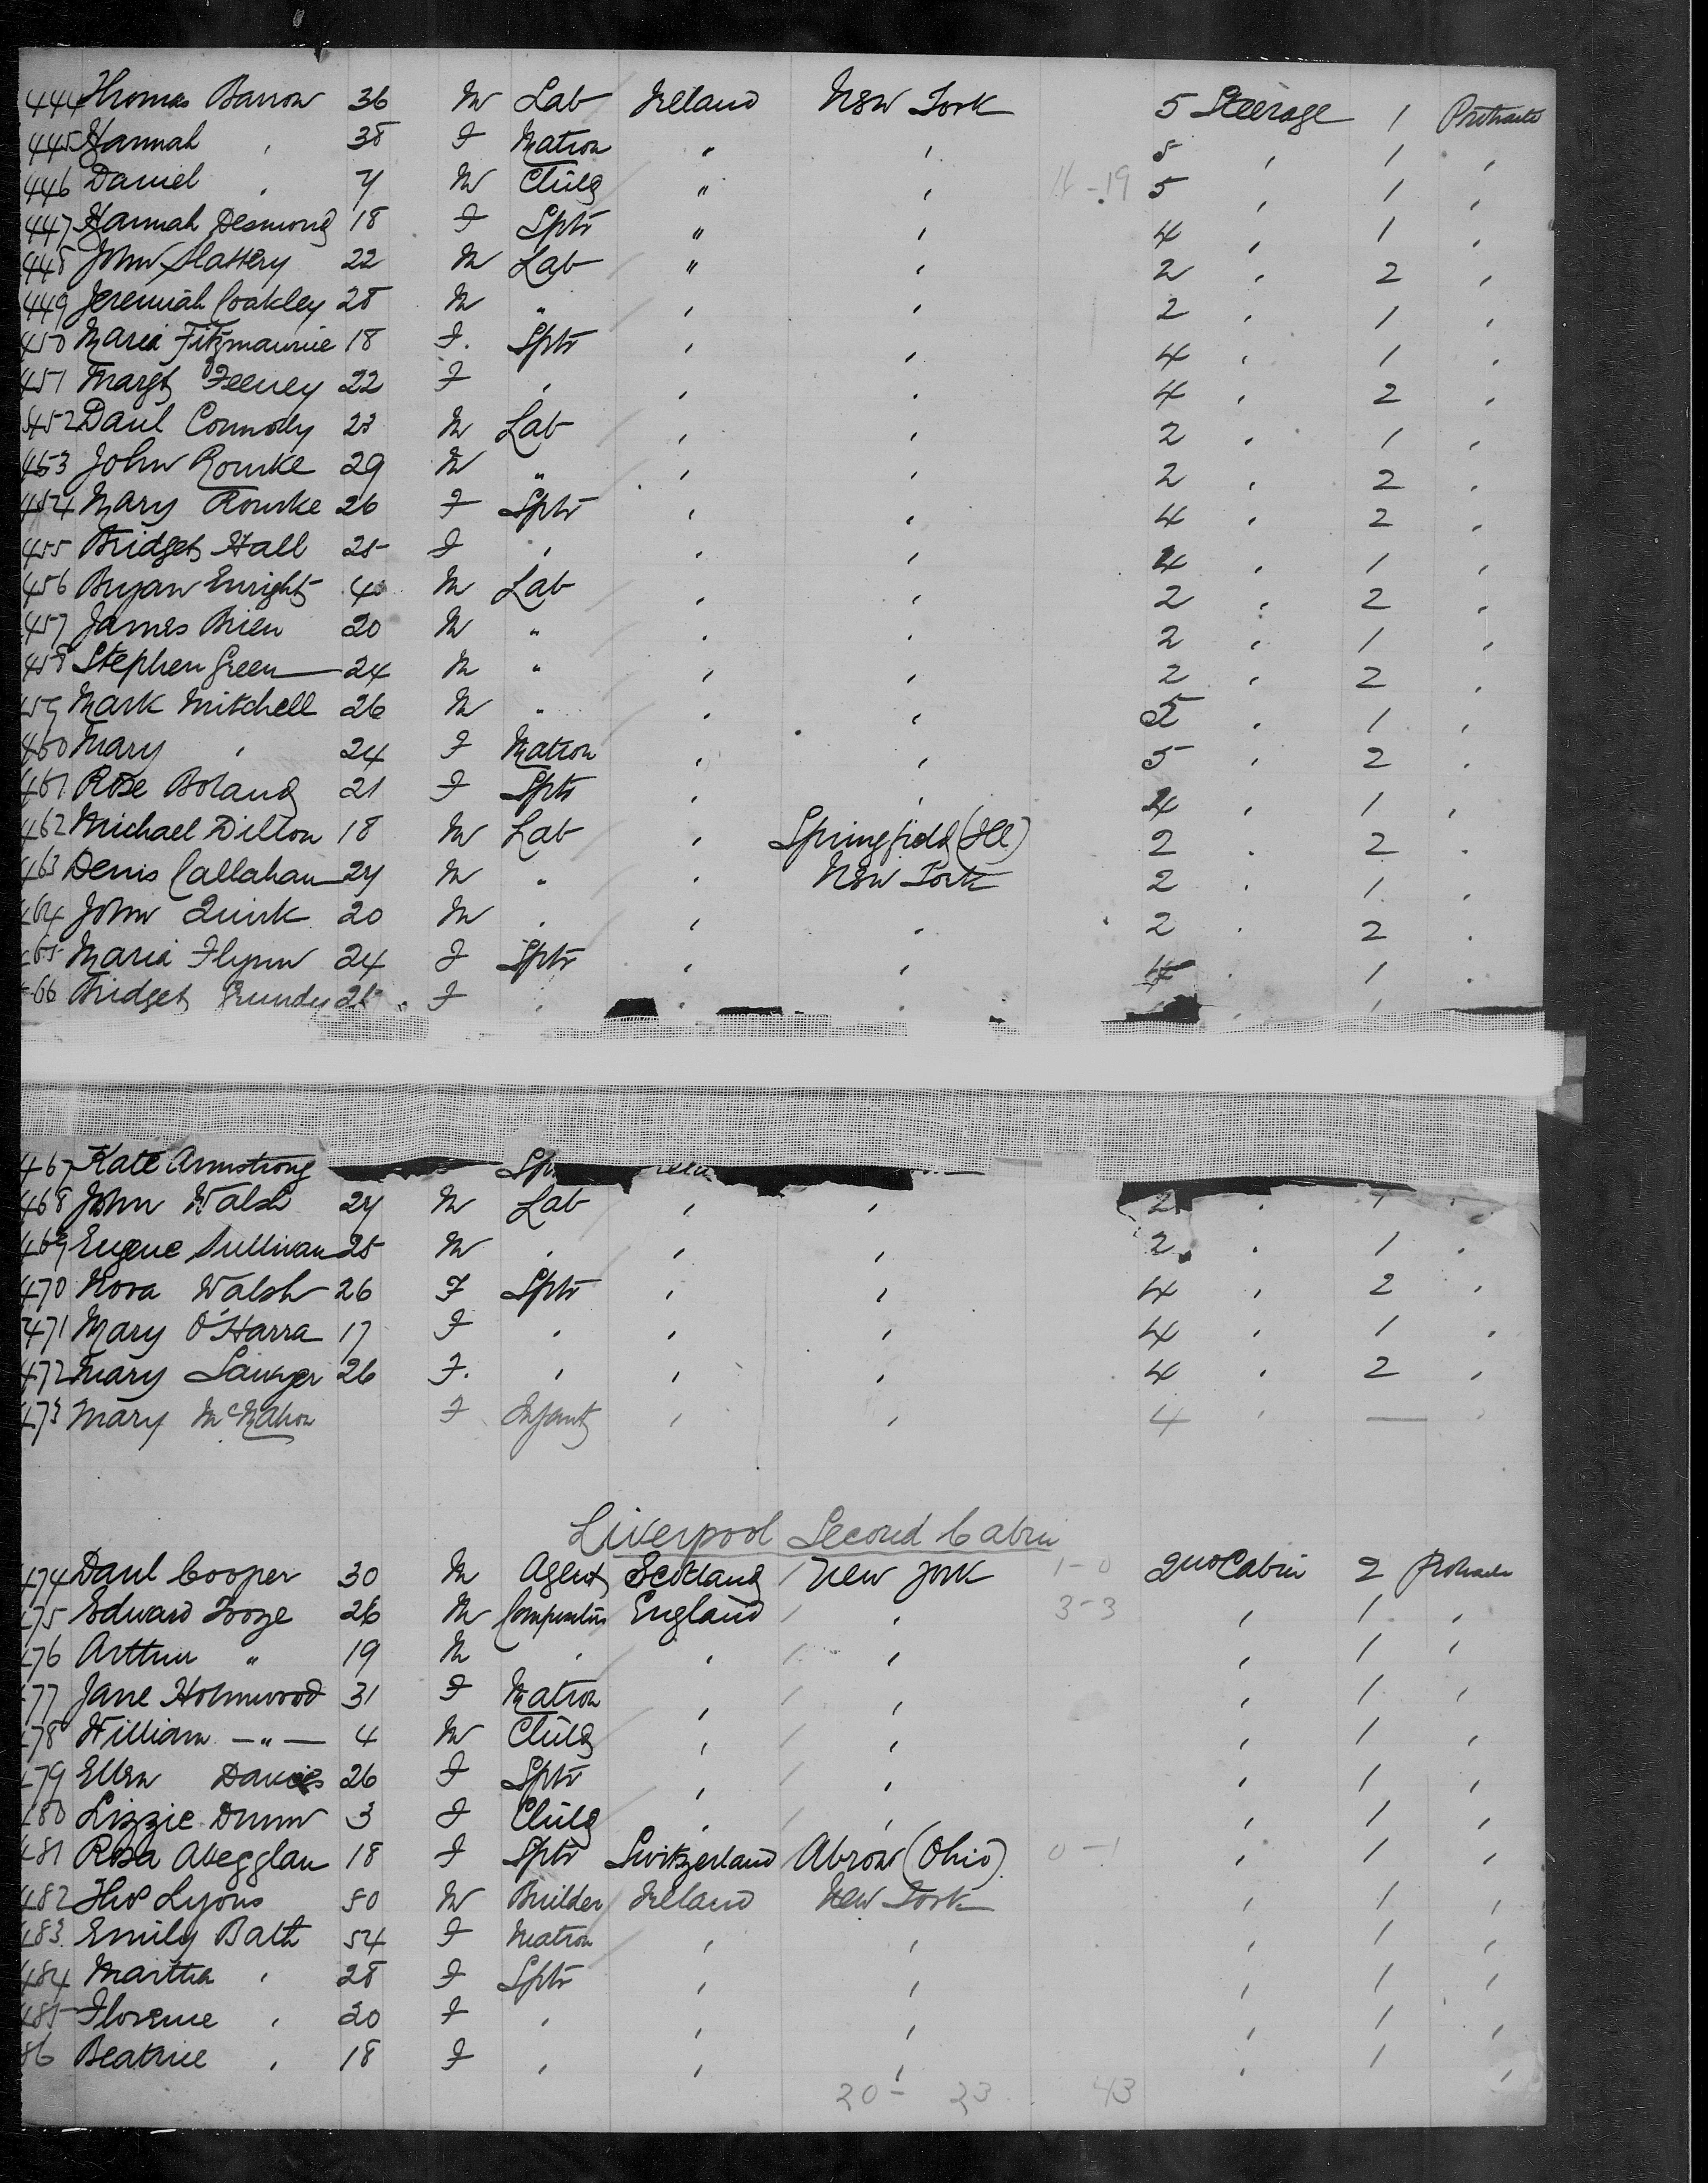 444 Thomas Barrow 36 M Lab Ireland New York 5 Steerage 1 Protracted
445 Hannah , 38 F Matron " , 5 , 1 ,
446 Daniel , 7 M Child " , 5 , 1 ,
447 Hannah Desmond 18 F Sptr " , 4 , 1 ,
448 John Slattery 22 M Lab " , 2 , 2 ,
449 Jeremiah Coakley 28 M " , , 2 , 1 ,
450 Maria Fitzmaurice 18 F. Sptr , , 4 , 1 ,
451 Margt Feeney 22 F , , , 4 , 2 ,
452 Danl Connolly 23 M Lab , , 2 , 1 ,
453 John Rourke 29 M " , , 2 , 2 ,
454 Mary Rourke 26 F Sptr , , 4 , 2 ,
455 Bridget Hall 25 F , , , 4 , 1 ,
456 Bryan Enright 40 M Lab , , 2 , 2 ,
457 James Brien 20 M " , , 2 , 1 ,
458 Stephen Green 24 M " , , 2 , 2 ,
459 Mark Mitchell 26 M " , , 5 , 1 ,
460 Mary , 24 F Matron , , 5 , 2 ,
461 Rose Boland 21 F Sptr , , 4 , 1 ,
462 Michael Dillon 18 M Lab , Springfield (Ill) 2 , 2 ,
463 Denis Callahan 24 M " , New York 2 , 1 ,
464 John Quirk 20 M , , , 2 , 2 ,
465 Maria Flynn 24 F Sptr , , 4 , 1 ,
466 Bridget Grundy F , , , , 1 ,
467 Kate Armstrong
468 John Walsh 24 M Lab , , 2 , 1 ,
469 Eugene Sullivan 25 M , , , 2 , 1 ,
470 Nora Walsh 26 F Sptr , , 4 , 2 ,
471 Mary O'Harra 17 F , , , 4 , 1 ,
472 Mary Sawyer 26 F. , , , 4 , 2 ,
473 Mary McMahon F Infant , , 4 , — ,
Liverpool Second Cabin
474 Danl Cooper 30 M Agent Scotland New York 1-0 2nd Cabin 2 Protracted
475 Edward Tooze 26 M England , 3-3 , 1 ,
476 Arthur " 19 M , , , , 1 ,
477 Jane Holmwood 31 F Matron , , , 1 ,
478 William —"— 4 M Child , , , 1 ,
479 Ellen Davies 26 F Sptr , , , 1 ,
480 Lizzie Dunn 3 F Child , , , 1 ,
481 Rosa Abegglan 18 F Sptr Switzerland Abron (Ohio) 0-1 , 1 ,
482 Thos Lyons 50 M Builder Ireland New York , 1 ,
483. Emily Bath 54 F Matron , , , 1 ,
484 Martha , 28 F Sptr , , , 1 ,
485 Florence , 20 F , , , , 1 ,
86 Beatrice , 18 F , , , , 1 ,
20- 23 43